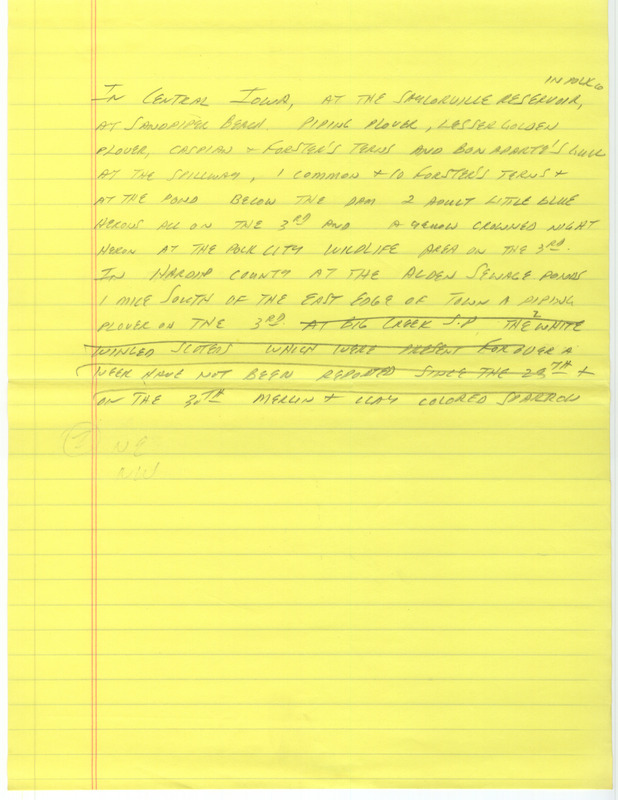 IN POLK Co
IN CENTRAL IOWA, AT THE SAYLORVILLE RESERVOIR,
AT SANDPIPER BEACH PIPING PLOVER, LESSER GOLDEN
PLOVER, CASPIAN + FORSTER'S TERNS AND BONAPARTE'S GULL
AT THE SPILLWAY, 1 COMMON + 10 FORSTER'S TERNS +
AT THE POND BELOW THE DAM 2 ADULT LITTLE BLUE
HERONS ALL ON THE 3RD AND A YELLOW CROWNED NIGHT
HERON AT THE POLK CITY WILDLIFE AREA ON THE 3RD.
IN HARDIN COUNTY AT THE ALDEN SEWAGE PONDS
1 MILE SOUTH OF THE EAST EDGE OF TOWN A PIPING
PLOVER ON THE 3RD. AT BIG CREEK S.P. THE 2 WHITE
WINGED SCOTERS WHICH WERE PRESENT FOR OVER A
WEEK HAVE NOT BEEN REPORTED SINCE THE 28TH +
ON THE 30TH MERLIN + CLAY COLORED SPARROW
NE
NW